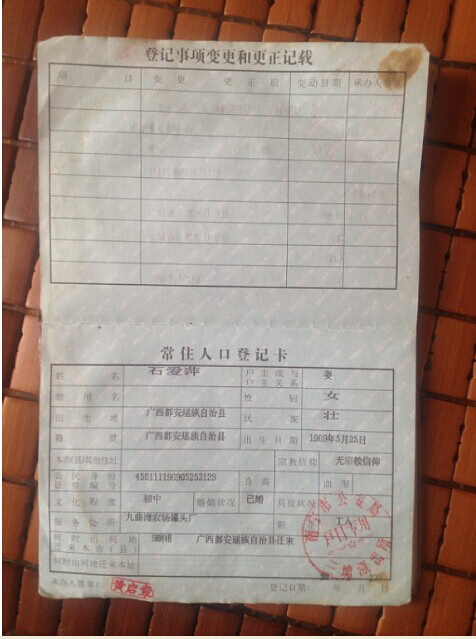 登记事项变更和更正记载
项 目 变更、更正后 变动日期
常住人口登记卡
姓名 石爱萍 户主或与户主关系 妻
曾用名 性别 女
出生地 广西都安瑶族自治县 民族 壮
籍贯 广西都安瑶族自治县 出生日期 1969年5月25日
本市(县)其他住址 宗教信仰 无宗教信仰
公民身份证件编号 450111196905252129 身高 血型
文化程度 初中 婚姻状况 已婚 兵役状况
服务处所 九曲湾农场罐头厂 职业 工人
何时由何地迁来本市(县) 广西都安瑶族自治县迁来
何时由何地迁来本址
承办人签章： 登记日期： 年 月 日